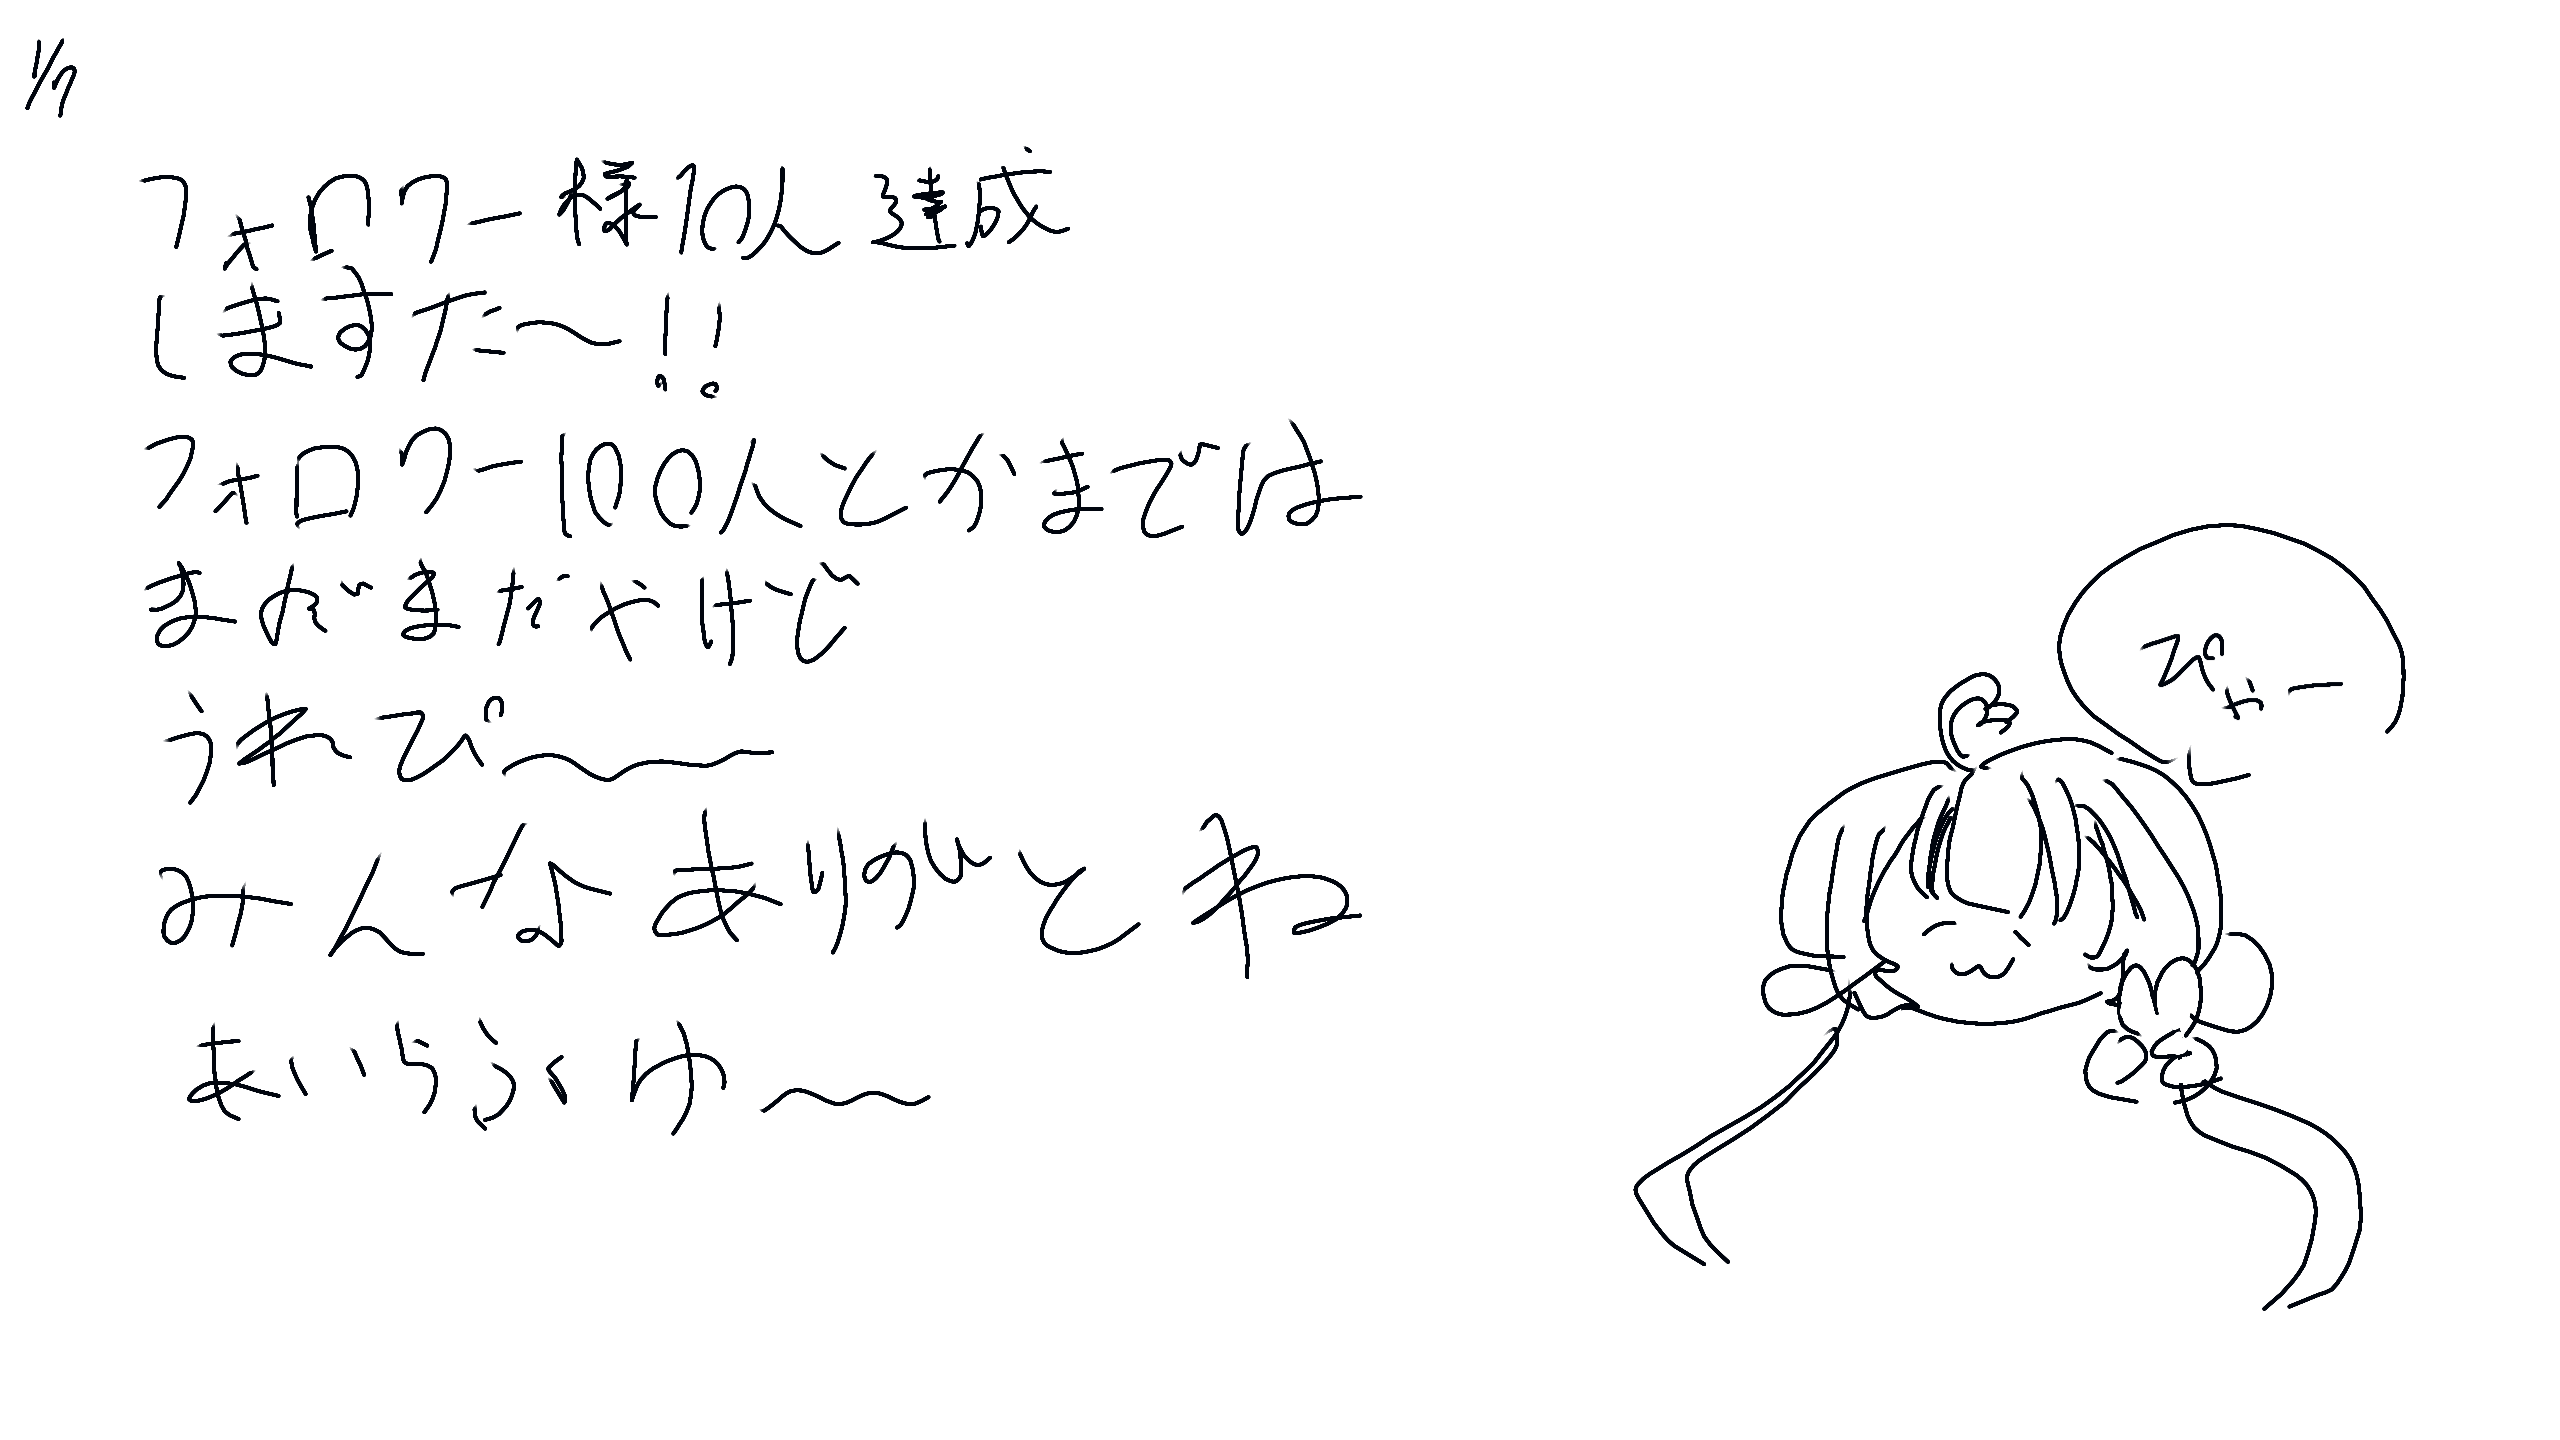 1/7
フォロワー様10人達成
しますた〜!!
フォロワー100人とかまでは
まだまだやけど
うれぴ〜〜
みんなありがとね
あいらぶゆ〜〜
ぴゃー